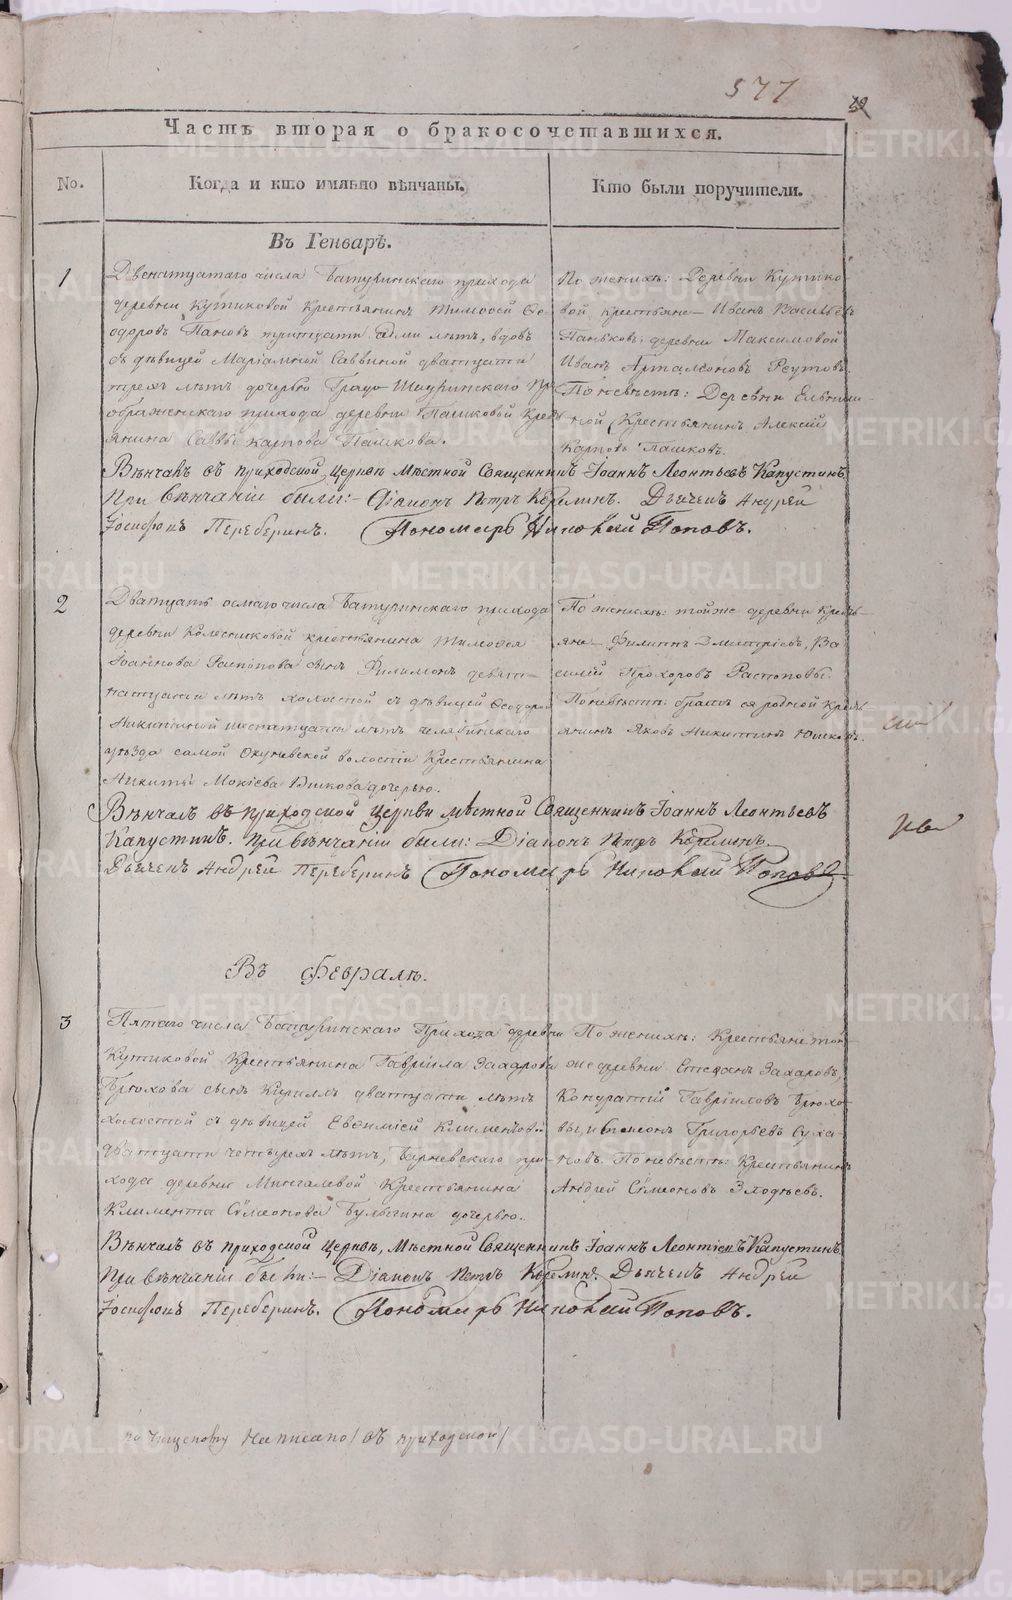 577
Часть вторая о бракосочетавшихся.
No.
Когда и кто имянно вѣнчаны.
Кто были поручители.
Въ Генварѣ.
1
Двенатцатаго числа Батуринскаго прихода
деревни Кутиковой Крестьянинъ Тимоѳей Ѳе
одоровъ Пановъ тритцати семи лѣтъ, вдовъ
съ дѣвицей Маріамной Саввиной дватцати
трехъ лѣтъ дочерью Градо-Шадринскаго Пре
ображенскаго прихода деревни Пашковой Крест
янина Саввы Карпова Пашкова.
По женихѣ: Деревни Кутико
вой крестьяне Иванъ Васильевъ
Паньковъ, деревни Максимовой
Иванъ Артамоновъ Реутовъ
По невѣстѣ: Деревни
ной Крестьянинъ Алексѣй
Карповъ Пашковъ.
Вѣнчалъ въ приходской церкви Мѣстной Священникъ Іоаннъ Леонтьевъ Капустинъ
При вѣнчаніи были: Діаконъ Петръ Кокоринъ. Дьячекъ Андрей
Іосифовъ Переберинъ. Пономарь Николай Поповъ.
2
Дватцать осмаго числа Батуринскаго прихода
деревни Колесниковой крестьянина Тимоѳея
Іоаннова Распопова сынъ Филимонъ девят
натцати лѣтъ холостой съ дѣвицей Ѳеодорой
Никитиной шеснатцати лѣтъ Челябинскаго
уѣзда самой Окуневской волости Крестьянина
Никиты Мокіева дочерью.
По женихѣ: тойже деревни Кресть
яне Филиппъ Дмитріевъ, Ва
силій Прохоровъ Распоповы.
По невѣстѣ: братъ ея родной Крест
янинъ Яковъ Никитинъ
Вѣнчалъ въ приходской Церкви мѣстной Священникъ Іоаннъ Леонтьевъ
Капустинъ. При вѣнчаніи были: Діаконъ Петръ Кокоринъ.
Дьячекъ Андрей Переберинъ Пономарь Николай Поповъ.
Въ Февралѣ.
3
Пятаго числа Батуринскаго Прихода деревни
Кутиковой Крестьянина Гавріила Захарова
Брюхова сынъ Кириллъ дватцати лѣтъ
холостой съ дѣвицей Евѳиміей Климентовой
дватцати четырехъ лѣтъ, Барневскаго при
хода деревни Мингалевой Крестьянина
Климента Симеонова Булыгина дочерью.
По женихѣ: Крестьяне той
же деревни Степанъ Захаровъ,
Кондратій Гавріиловъ Брюхо
вы, и Симеонъ Григорьевъ Суха
новъ. По невѣстѣ: Крестьянинъ
Андрей Симеоновъ Злодѣевъ.
Вѣнчалъ въ приходской Церквѣ, Мѣстной Священникъ Іоаннъ Леонтіевъ Капустинъ
При вѣнчаніи были: Діаконъ Петръ Кокоринъ. Дьячекъ Андрей
Іосифовъ Переберинъ. Пономарь Николай Поповъ.
по Написано/ въ приходской/
METRIKI.GASO-URAL.RU